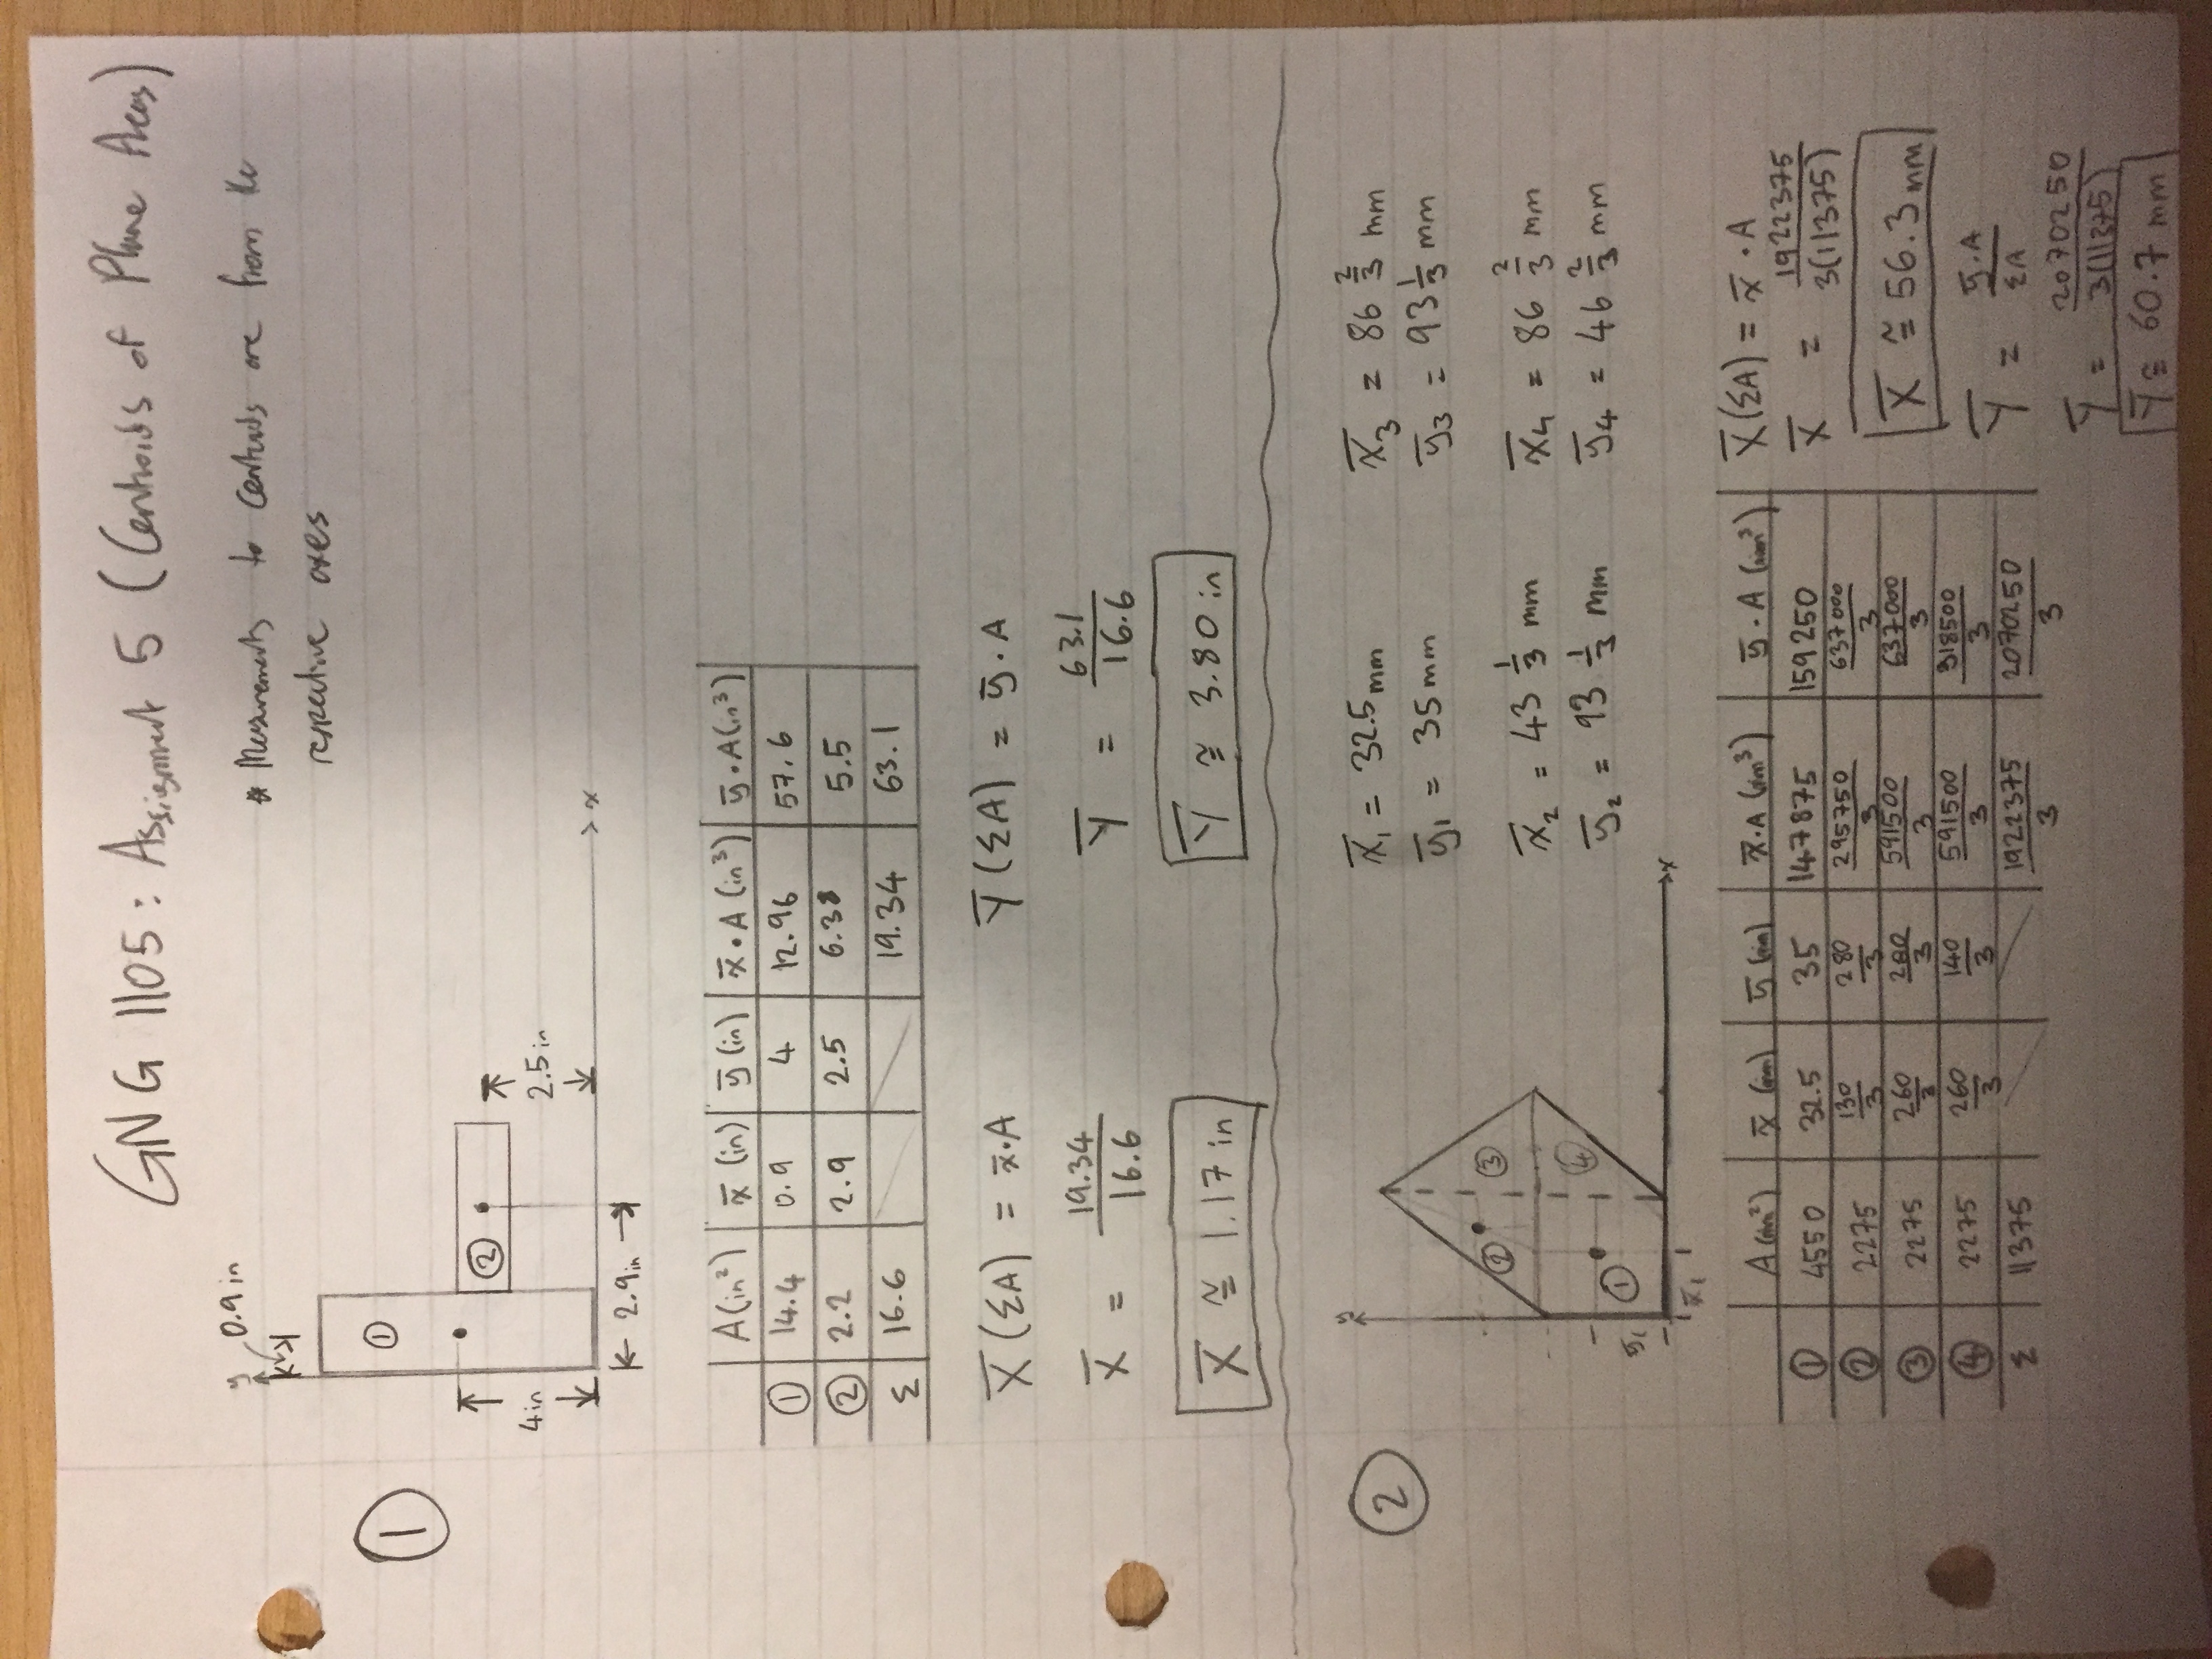 GNG 1105: Assignment 5 (Centroids of Plane Areas)
* Measurements to centroids are from the
respective axes
①
y
0.9 in
①
②
4 in
2.5 in
x
2.9 in
A (in²) x̄ (in) ȳ (in) x̄·A (in³) ȳ·A (in³)
① 14.4 0.9 4 12.96 57.6
② 2.2 2.9 2.5 6.38 5.5
Σ 16.6 19.34 63.1
X̄(ΣA) = x̄·A Ȳ(ΣA) = ȳ·A
X̄ = 19.34/16.6 Ȳ = 63.1/16.6
X̄ ≅ 1.17 in Ȳ ≅ 3.80 in
②
y
② ③
① ④
ȳ₁
x̄₁
x
x̄₁ = 32.5 mm x̄₃ = 86 2/3 mm
ȳ₁ = 35 mm ȳ₃ = 93 1/3 mm
x̄₂ = 43 1/3 mm x̄₄ = 86 2/3 mm
ȳ₂ = 93 1/3 mm ȳ₄ = 46 2/3 mm
A (mm²) x̄ (mm) ȳ (mm) x̄·A (mm³) ȳ·A (mm³)
① 4550 32.5 35 147875 159250
② 2275 130/3 280/3 295750/3 637000/3
③ 2275 260/3 280/3 591500/3 637000/3
④ 2275 260/3 140/3 591500/3 318500/3
Σ 11375 1922375/3 2070250/3
X̄(ΣA) = x̄·A
X̄ = 1922375/3(11375)
X̄ ≅ 56.3 mm
Ȳ = ȳ·A/ΣA
Ȳ = 2070250/3(11375)
Ȳ ≅ 60.7 mm